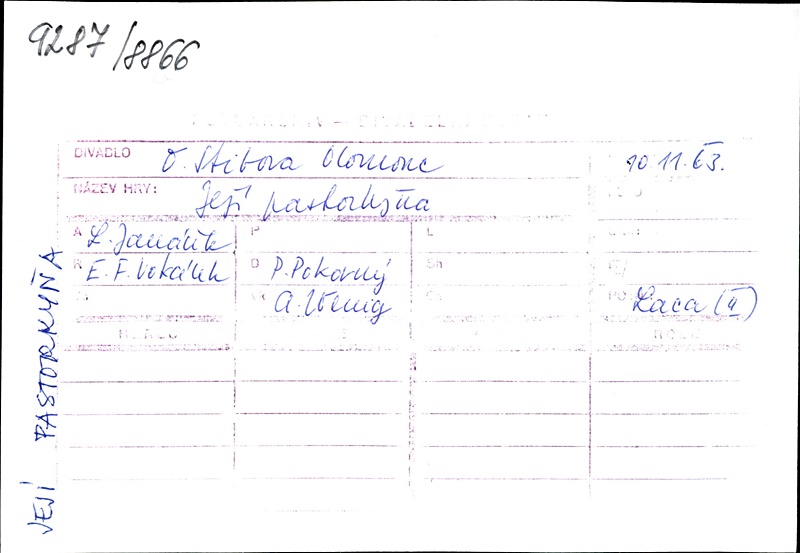 9287/8866
DIVADLO O. Stibora Olomouc 10.11.63.
NÁZEV HRY: Její pastorkyňa
A L. Janáček P L
R E. F. Vokálek D P. Pokorný Sh
A. Wenig Laca (II)
JEJÍ PASTORKYŇA